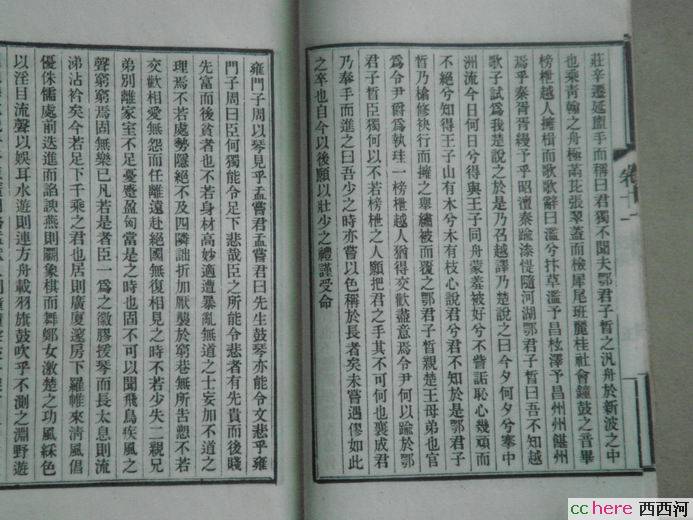 莊辛遷延盥手而稱曰君獨不聞夫鄂君子晳之汎舟於新波之中
也乘青翰之舟極䓣芘張翠蓋而檢犀尾班麗袿社會鐘鼓之音畢
榜枻越人擁楫而歌歌辭曰濫兮抃草濫予昌枑澤予昌州州𩜱州
焉乎秦胥胥縵予乎昭澶秦踰滲惿隨河湖鄂君子晳曰吾不知越
歌子試為我楚說之於是乃召越譯乃楚說之曰今夕何夕兮搴中
洲流今日何日兮得與王子同舟蒙羞被好兮不訾詬恥心幾頑而
不絕兮知得王子山有木兮木有枝心說君兮君不知於是鄂君子
晳乃㩉修袂行而擁之舉繡被而覆之鄂君子晳親楚王母弟也官
為令尹爵為執珪一榜枻越人猶得交歡盡意焉令尹何以踰於鄂
君子晳臣獨何以不若榜枻之人願把君之手其不可何也襄成君
乃奉手而進之曰吾少之時亦嘗以色稱於長者矣未嘗遇僇如此
之卒也自今以後願以壯少之禮謹受命
卷十一
雍門子周以琴見乎孟嘗君孟嘗君曰先生鼓琴亦能令文悲乎雍
門子周曰臣何獨能令足下悲哉臣之所能令悲者有先貴而後賤
先富而後貧者也不若身材高妙適遭暴亂無道之主妄加不道之
理焉不若處勢隱絕不及四鄰詘折儐厭襲於窮巷無所告愬不若
交歡相愛無怨而生離遠赴絕國無復相見之時不若少失二親兄
弟別離家室不足憂慼盈匈當是之時也固不可以聞飛鳥疾風之
聲窮窮焉固無樂已凡若是者臣一為之徽膠援琴而長太息則流
涕沾衿矣今若足下千乘之君也居則廣廈邃房下羅帷來清風倡
優侏儒處前迭進而諂諛燕則鬭象棋而舞鄭女激楚之切風綵色
以淫目流聲以娛耳水遊則連方舟載羽旗鼓吹乎不測之淵野遊
cchere 西西河